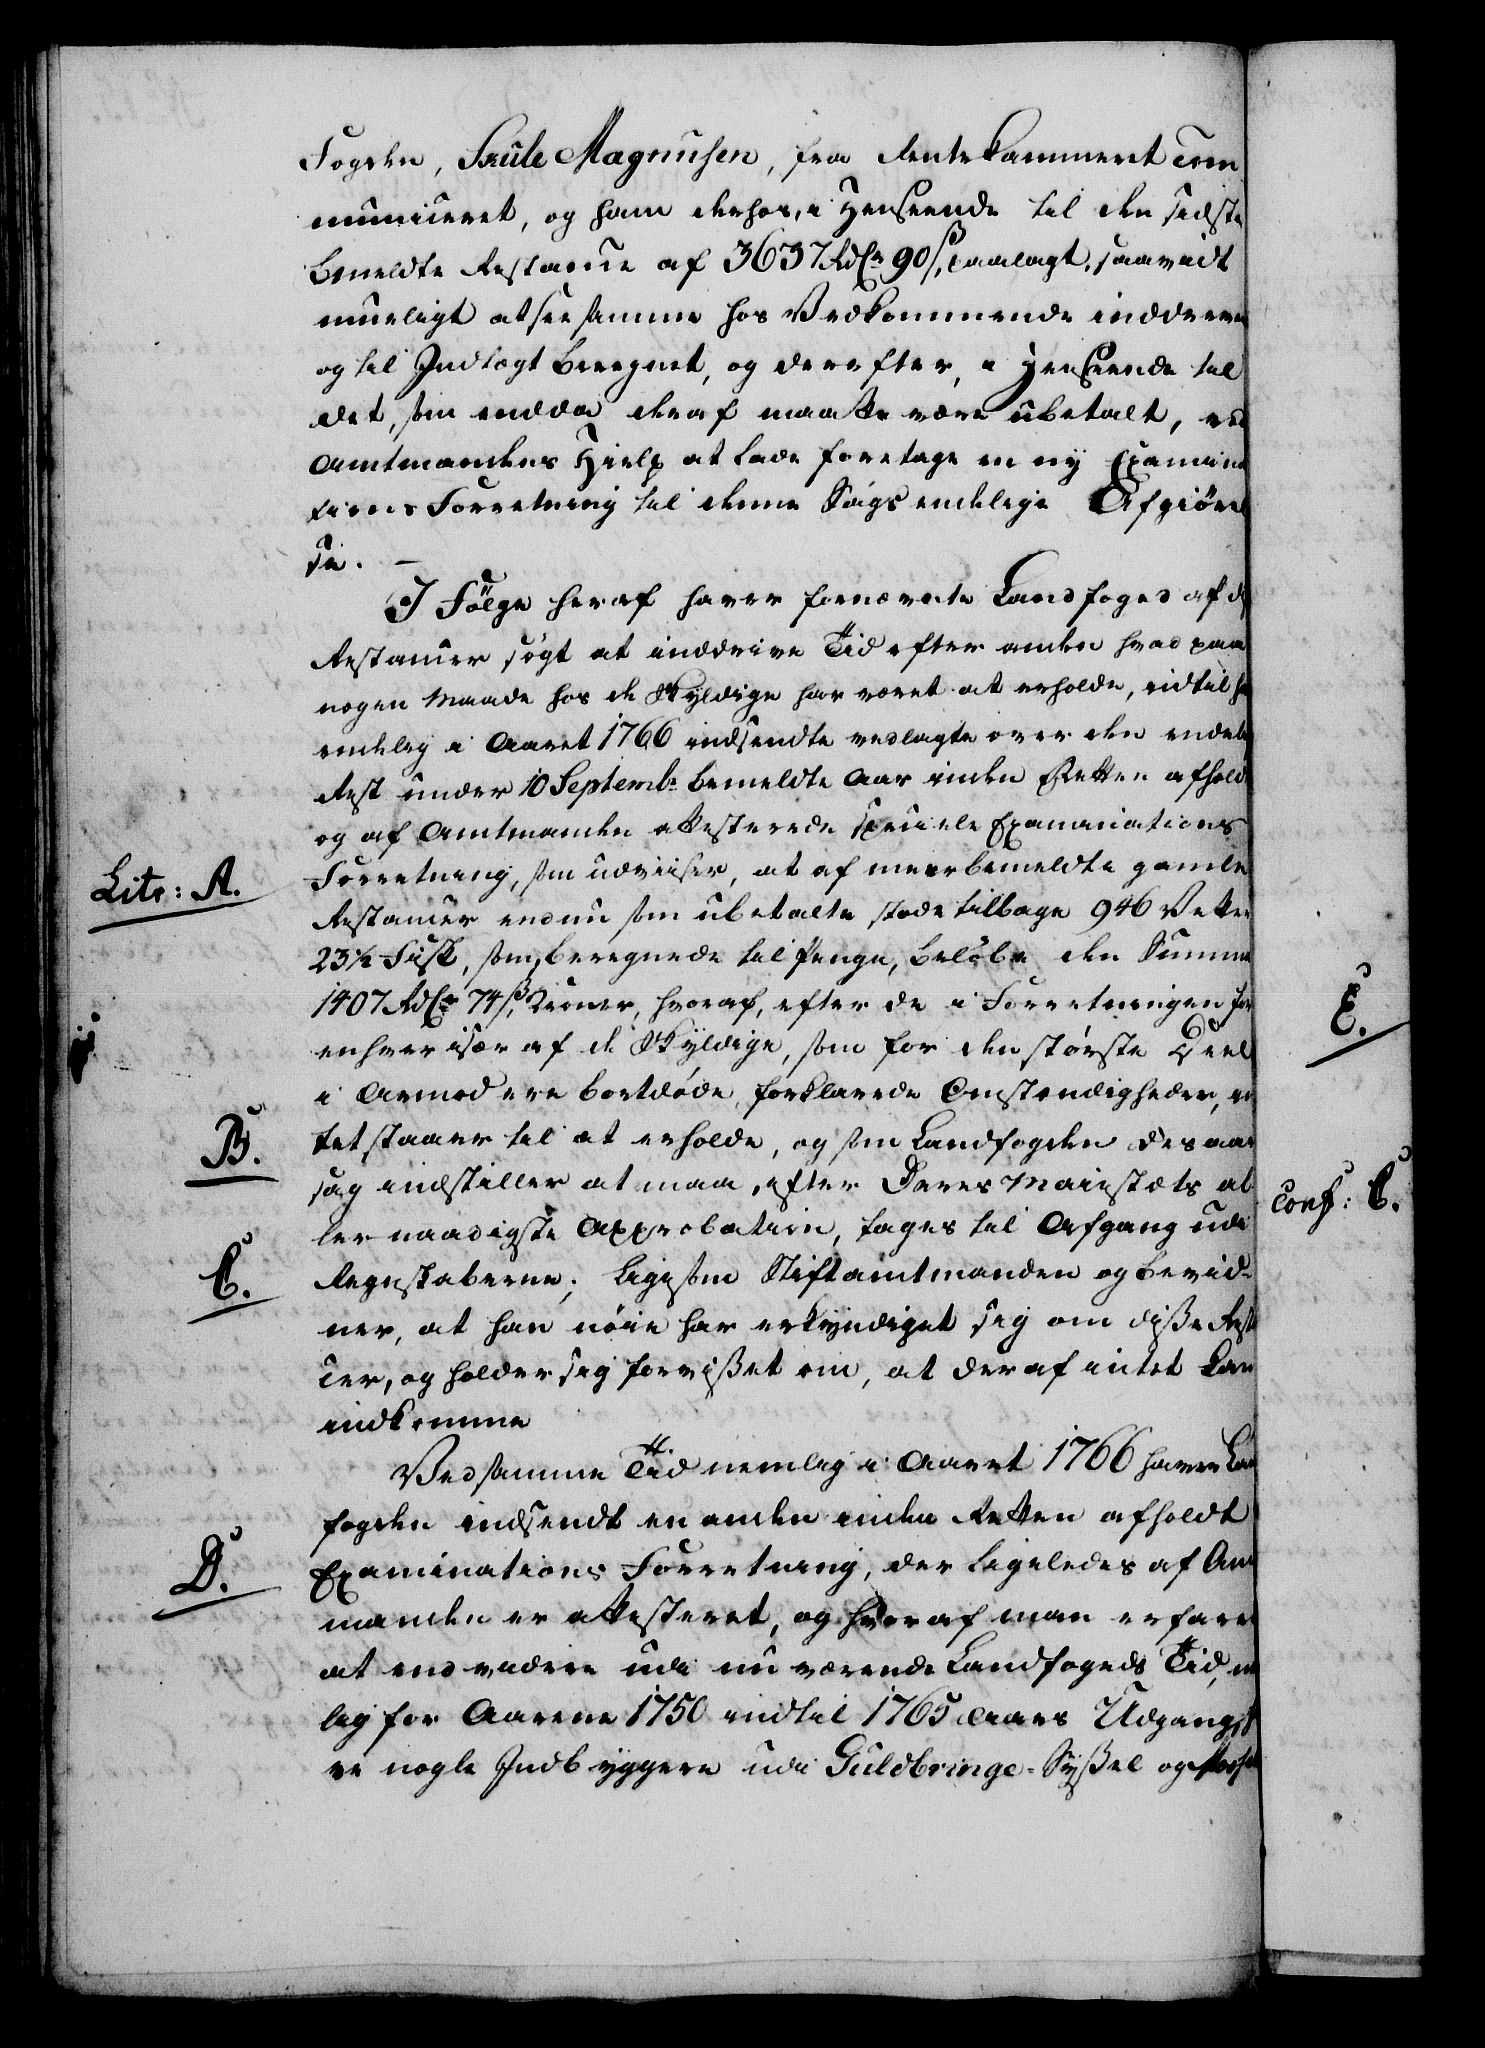 Fogden, Skule Magnusen, fra Rentekammeret com
municeret, og ham derhos, i Henseende til den sidst
bemeldte Restance af 3637 Rdlr 90 ß, paalagt, saavidt
mueligt at see samme hos Vedkommende inddreven
og til Indtægt beregnet, og derefter, i Henseende til
det, som endda deraf maatte være ubetalt, ved
Amtmandens Hielp at lade foretage en ny Examina
tions Forretning til denne Sags endelige Afgiörel
se. –
I Fölge heraf haver fornævnte Landfoged af de
Restancer sögt at inddrive Tid efter anden hvad paa
nogen Maade hos de Skyldige har været at erholde, indtil han
endelig i Aaret 1766 indsendte vedlagte over den endelige
Rest under 10 Septembr bemeldte Aar inden Retten afholdte
og af Amtmanden attesterede specielle Examinations
Litr: A.
Forretning, som udviiser, at af meerbemeldte gamle
Restancer endnu som ubetalte stode tilbage 946 Vetter
23 1/2 Fisk, som, beregnede til Penge, belöbe den Summa
1407 Rdlr 74 ß, Kroner, hvoraf, efter de i Forretningen for
enhver især af de Skyldige, som for den störste Deel
i Armod ere bortdöde, forklarede Omstændigheder, in
B.
tet staaer til at erholde, og som Landfogden desaar
sag indstiller at maa, efter Deres Maiestæts al
lernaadigste Approbation, tages til Afgang udi
C.
Regnskaberne; ligesom Stiftamtmanden og bevid-
ner, at han nöie har erkyndiget sig om disse Restan
cer, og holder sig forvisset om, at deraf intet kan
indkomme
Ved samme Tid nemlig i Aaret 1766 haver Land
fogden indsendt en anden inden Retten afholdt
D.
Examinations Forretning, der ligeledes af Amt
manden er attesteret, og hvoraf man erfarer
at end videre udi nu værende Landfogeds Tid, nem
lig for Aarene 1750 indtil 1765 Aars Udgang, ha
ve nogle Indbyggere udi Guldbringe-Syssel og
E.
conf: C.